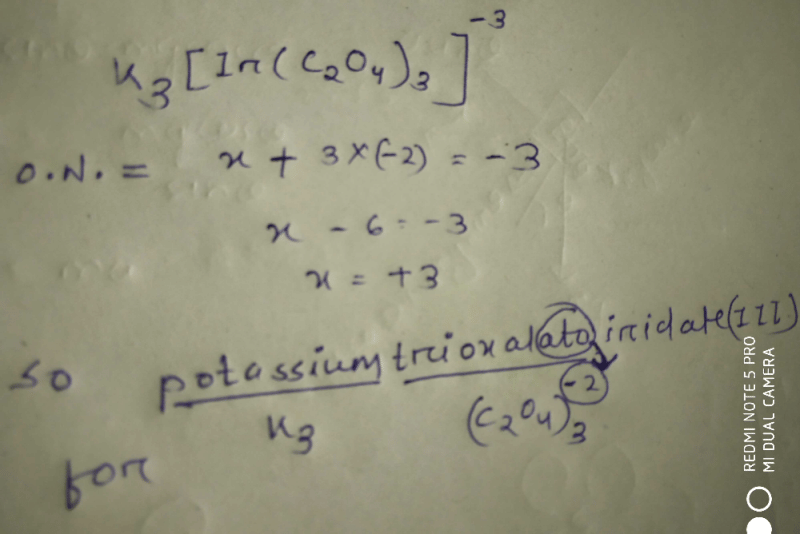 K₃[Ir(C₂O₄)₃]⁻³
O.N. = x + 3×(-2) = -3
x - 6 = -3
x = +3
so potassium trioxalato iridate(III)
K₃ (C₂O₄)₃⁻²
for
REDMI NOTE 5 PRO
MI DUAL CAMERA